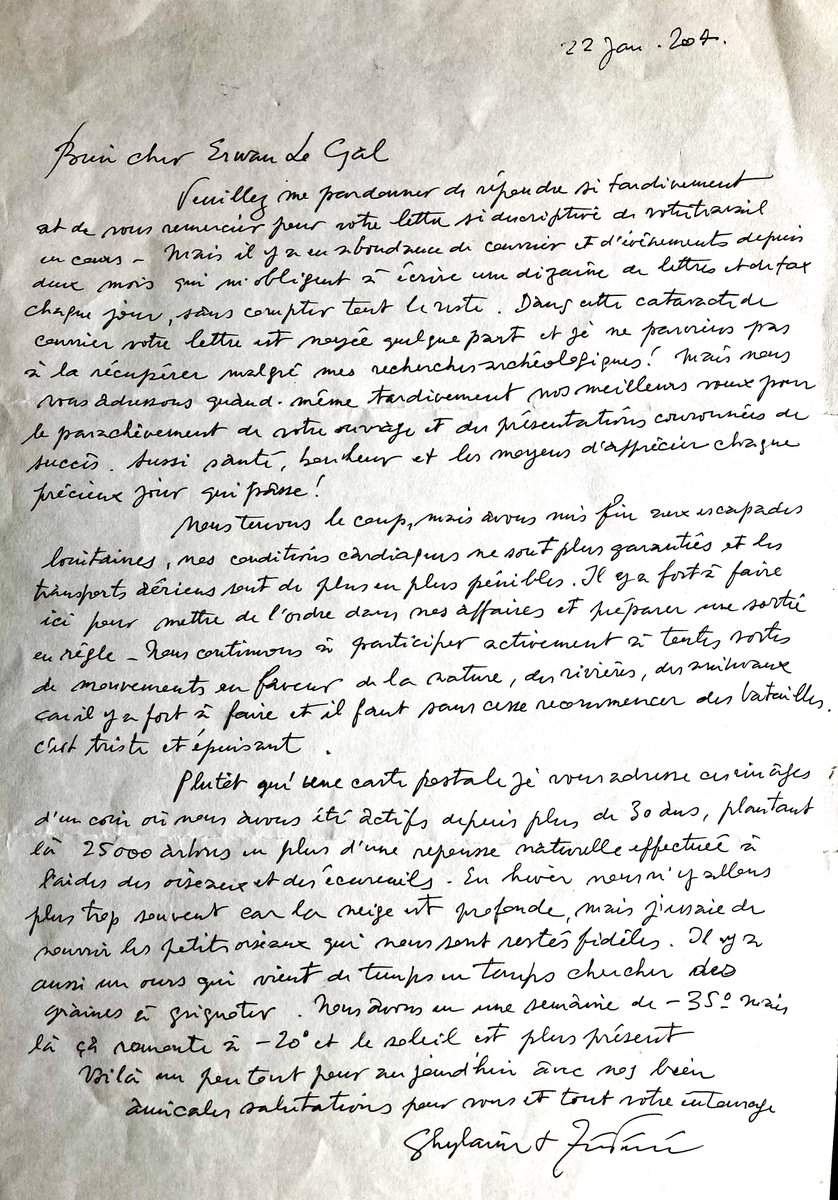 22 Jan. 2004.
Bien cher Erwan Le Gal
Veuillez me pardonner de répondre si tardivement
et de vous remercier pour votre lettre si descriptive de votre travail
en cours – Mais il y a eu abondance de courrier et d'évènements depuis
deux mois qui m'obligent à écrire une dizaine de lettres et de fax
chaque jour, sans compter tout le reste. Dans cette cataracte de
courrier votre lettre est noyée quelque part et je ne parviens pas
à la récupérer malgré mes recherches archéologiques! Mais nous
vous adressons quand-même tardivement nos meilleurs vœux pour
le parachèvement de votre ouvrage et des présentations couronnées de
succès. Aussi santé, bonheur et les moyens d'apprécier chaque
précieux jour qui passe!
Nous tenons le coup, mais avons mis fin aux escapades
lointaines, nos conditions cardiaques ne sont plus garanties et les
transports aériens sont de plus en plus pénibles. Il y a fort à faire
ici pour mettre de l'ordre dans nos affaires et préparer une sortie
en règle – Nous continuons à participer activement à toutes sortes
de mouvements en faveur de la nature, des rivières, des animaux
car il y a fort à faire et il faut sans cesse recommencer des batailles.
c'est triste et épuisant.
Plutôt qu'une carte postale je vous adresse ces images
d'un coin où nous avons été actifs depuis plus de 30 ans, plantant
là 25000 arbres en plus d'une repousse naturelle effectuée à
l'aide des oiseaux et des écureuils. En hiver nous n'y allons
plus trop souvent car la neige est profonde, mais j'essaie de
nourrir les petits oiseaux qui nous sont restés fidèles. Il y a
aussi un ours qui vient de temps en temps chercher des
graines à grignoter. Nous avons eu une semaine de –35° mais
là çà remonte à –20° et le soleil est plus présent
Voilà un peu tout pour aujourd'hui avec nos bien
amicales salutations pour vous et tout votre entourage
Ghylaine &